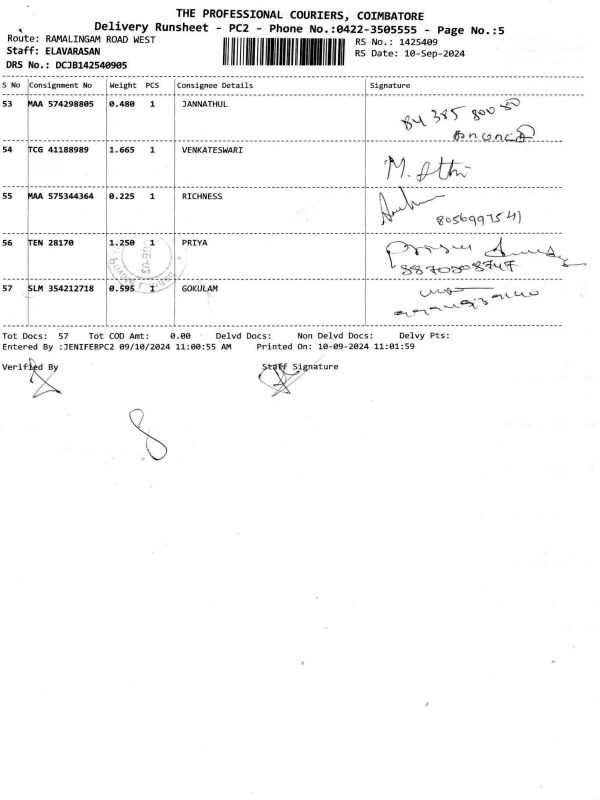 THE PROFESSIONAL COURIERS, COIMBATORE
Delivery Runsheet - PC2 - Phone No.:0422-3505555 - Page No.:5
Route: RAMALINGAM ROAD WEST RS No.: 1425409
Staff: ELAVARASAN RS Date: 10-Sep-2024
DRS No.: DCJB142540905
S No Consignment No Weight PCS Consignee Details Signature
53 MAA 574298805 0.480 1 JANNATHUL
84 385 800 50
54 TCG 41188989 1.665 1 VENKATESWARI
55 MAA 575344364 0.225 1 RICHNESS
8056997541
56 TEN 28170 1.250 1 PRIYA
8870208747
57 SLM 354212718 0.595 1 GOKULAM
Tot Docs: 57 Tot COD Amt: 0.00 Delvd Docs: Non Delvd Docs: Delvy Pts:
Entered By :JENIFERPC2 09/10/2024 11:00:55 AM Printed On: 10-09-2024 11:01:59
Verified By Staff Signature
8